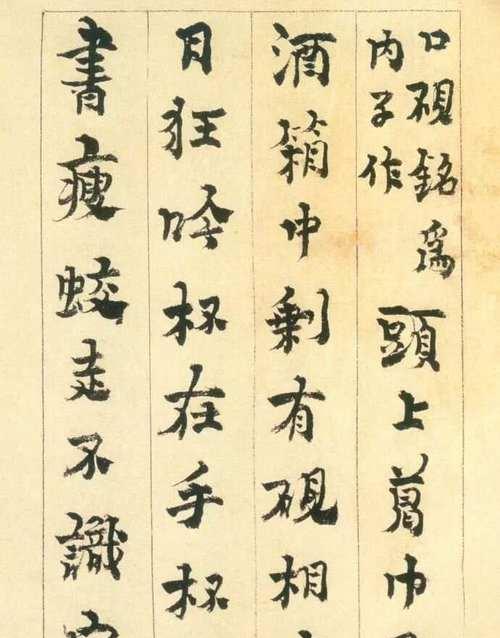 口硯銘爲
内子作
頭上葛巾
酒箱中剩有硯相
日狂吟杯在手杯
書瘦蛟走不識